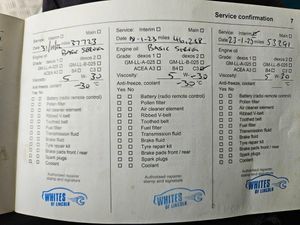 Service confirmation 7
Service: Interim ☐ Main ☐
Date miles 37723
BASIC SERVICE
Engine oil
Grade: dexos 1 ☐ dexos 2 ☐
GM-LL-A-025 ☐ GM-LL-B-025 ☐
ACEA A3 ☐ B4 ☐ C3
Viscosity:
5 W 30
Anti-freeze, coolant
-30 °C
Yes No
☐ ☐ Battery (radio remote control)
☐ ☐ Pollen filter
☐ ☐ Air cleaner element
☐ ☐ Ribbed V-belt
☐ ☐ Toothed belt
☐ ☐ Fuel filter
☐ ☐ Transmission fluid
☐ ☐ Brake fluid
☐ ☐ Tyre repair kit
☐ ☐ Brake pads front / rear
☐ ☐ Spark plugs
☐ ☐ Coolant
Authorised repairer
stamp and signature
WHITES
OF LINCOLN
Service: Interim ☐ Main ☐
Date miles
BASIC SERVICE
Engine oil
Grade: dexos 1 ☐ dexos 2 ☐
GM-LL-A-025 ☐ GM-LL-B-025 ☐
ACEA A3 ☐ B4 ☐ C3
Viscosity:
5 W -30
Anti-freeze, coolant
-30 °C
Yes No
☐ ☐ Battery (radio remote control)
☐ ☐ Pollen filter
☐ ☐ Air cleaner element
☐ ☐ Ribbed V-belt
☐ ☐ Toothed belt
☐ ☐ Fuel filter
☐ ☐ Transmission fluid
☐ ☐ Brake fluid
☐ ☐ Tyre repair kit
☐ ☐ Brake pads front / rear
☐ ☐ Spark plugs
☐ ☐ Coolant
Authorised repairer
stamp and signature
WHITES
OF LINCOLN
Service: Interim Main ☐
Date miles
Engine oil
Grade: dexos 1 ☐ dexos 2 ☐
GM-LL-A-025 ☐ GM-LL-B-025 ☐
ACEA A3 ☐ B4 ☐ C3
Viscosity:
5 W 30
Anti-freeze, coolant
-30 °C
Yes No
☐ ☐ Battery (radio remote control)
☐ ☐ Pollen filter
☐ ☐ Air cleaner element
☐ ☐ Ribbed V-belt
☐ ☐ Toothed belt
☐ ☐ Fuel filter
☐ ☐ Transmission fluid
☐ ☐ Brake fluid
☐ ☐ Tyre repair kit
☐ ☐ Brake pads front / rear
☐ ☐ Spark plugs
☐ ☐ Coolant
Authorised repairer
stamp and signature
WHITES
OF LINCOLN